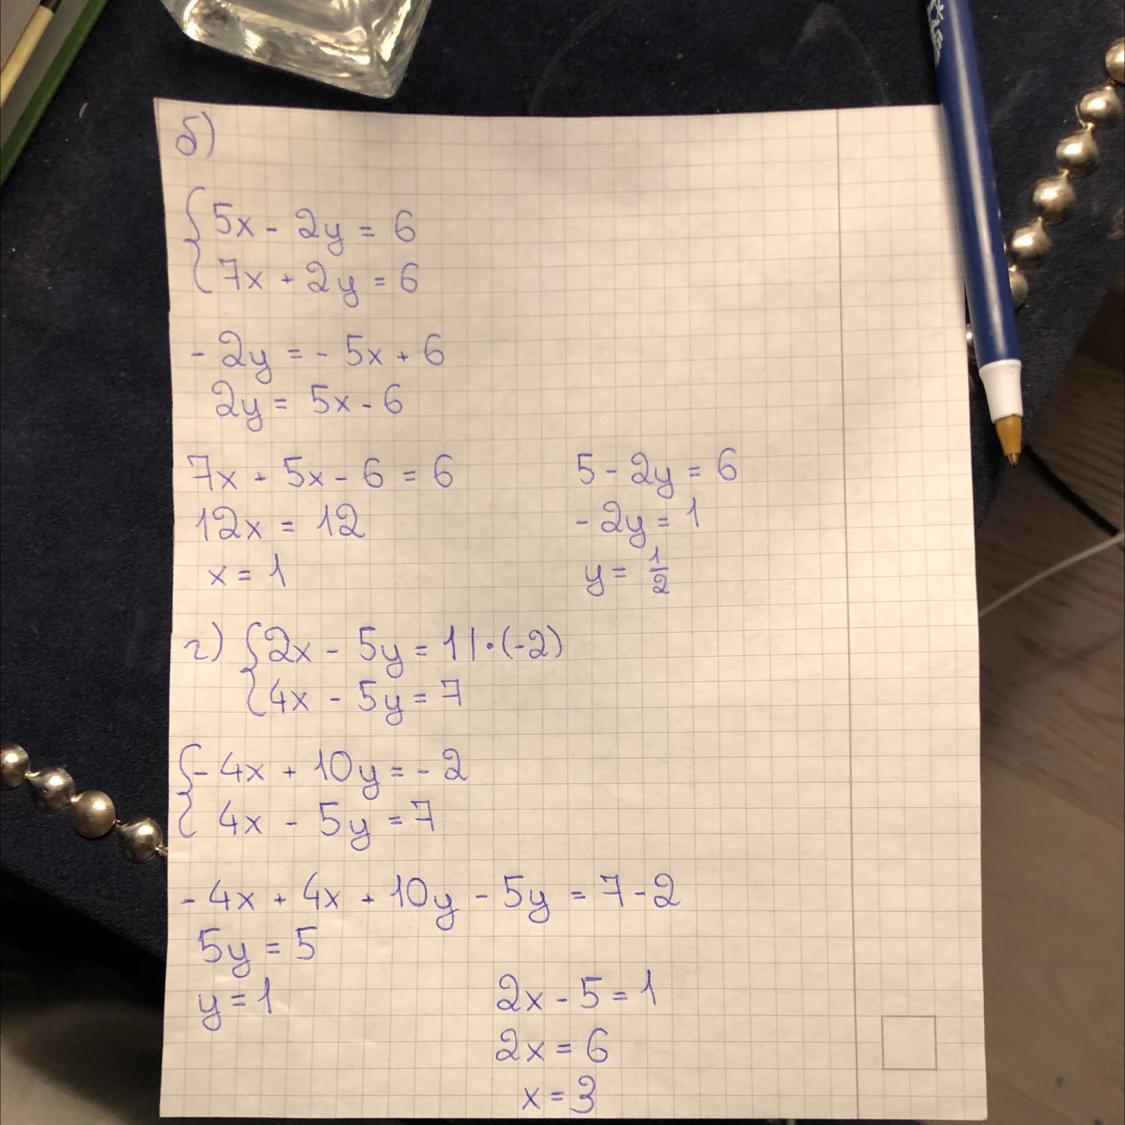 б)
5x - 2y = 6
7x + 2y = 6
- 2y = - 5x + 6
2y = 5x - 6
7x + 5x - 6 = 6
12x = 12
x = 1
5 - 2y = 6
- 2y = 1
y = 1/2
г) 2x - 5y = 1 | · (-2)
4x - 5y = 7
- 4x + 10y = - 2
4x - 5y = 7
- 4x + 4x + 10y - 5y = 7 - 2
5y = 5
y = 1
2x - 5 = 1
2x = 6
x = 3